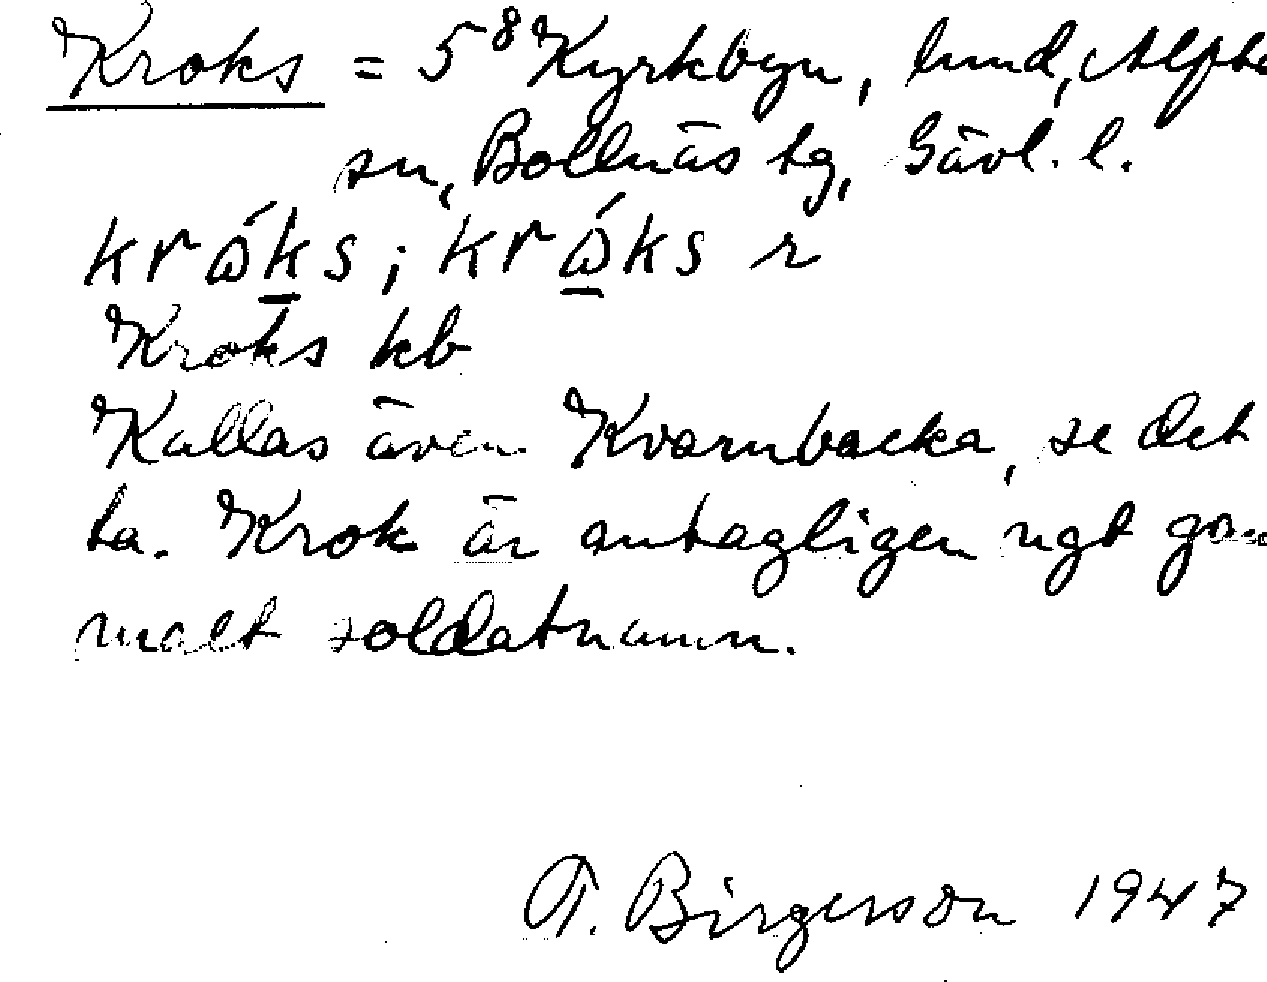 Kroks = 5⁸ Kyrkbyn, hmd, Alfta
sn, Bollnäs tg, Gävl. l.
krɷ́ks; krɷ́ks r
Kroks kb
Kallas även Kvarnbacka, se det
ta. Krok är antagligen ngt gam
malt soldatnamn.
T. Birgerson 1947